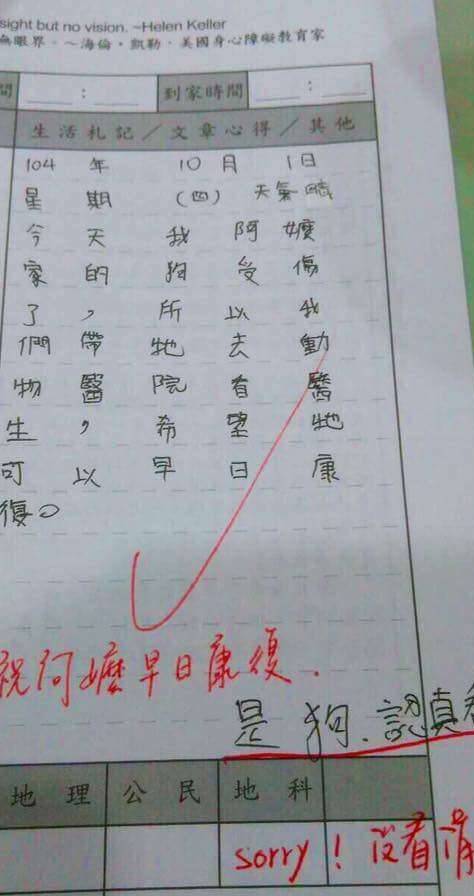 sight but no vision. ~Helen Keller
無眼界。~海倫·凱勒·美國身心障礙教育家
間 ___ : ___ 到家時間 ___ : ___
生活札記／文章心得／其他
104 年 10 月 1日
星期 (四) 天氣 晴
今天我阿嬤
家的狗受傷
了，所以我
們帶牠去動
物醫院看醫
生，希望牠
可以早日康
復。
祝阿嬤早日康復.
是狗.認真看
地理 公民 地科
sorry! 沒看清